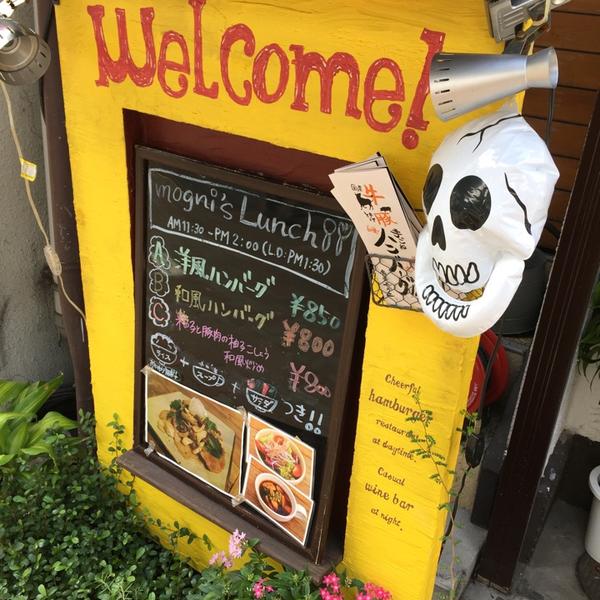 Welcome!
mogni's Lunch
AM11:30~PM2:00 (L.O:PM1:30)
A 洋風ハンバーグ ¥850
B 和風ハンバーグ ¥800
C と豚肉の柚子こしょう
和風炒め ¥800
ライス + スープ + サラダ つき!!
牛豚
ハンバーグ
Cheerful
hamburger
restaurant
at daytime.
Casual
wine bar
at night.